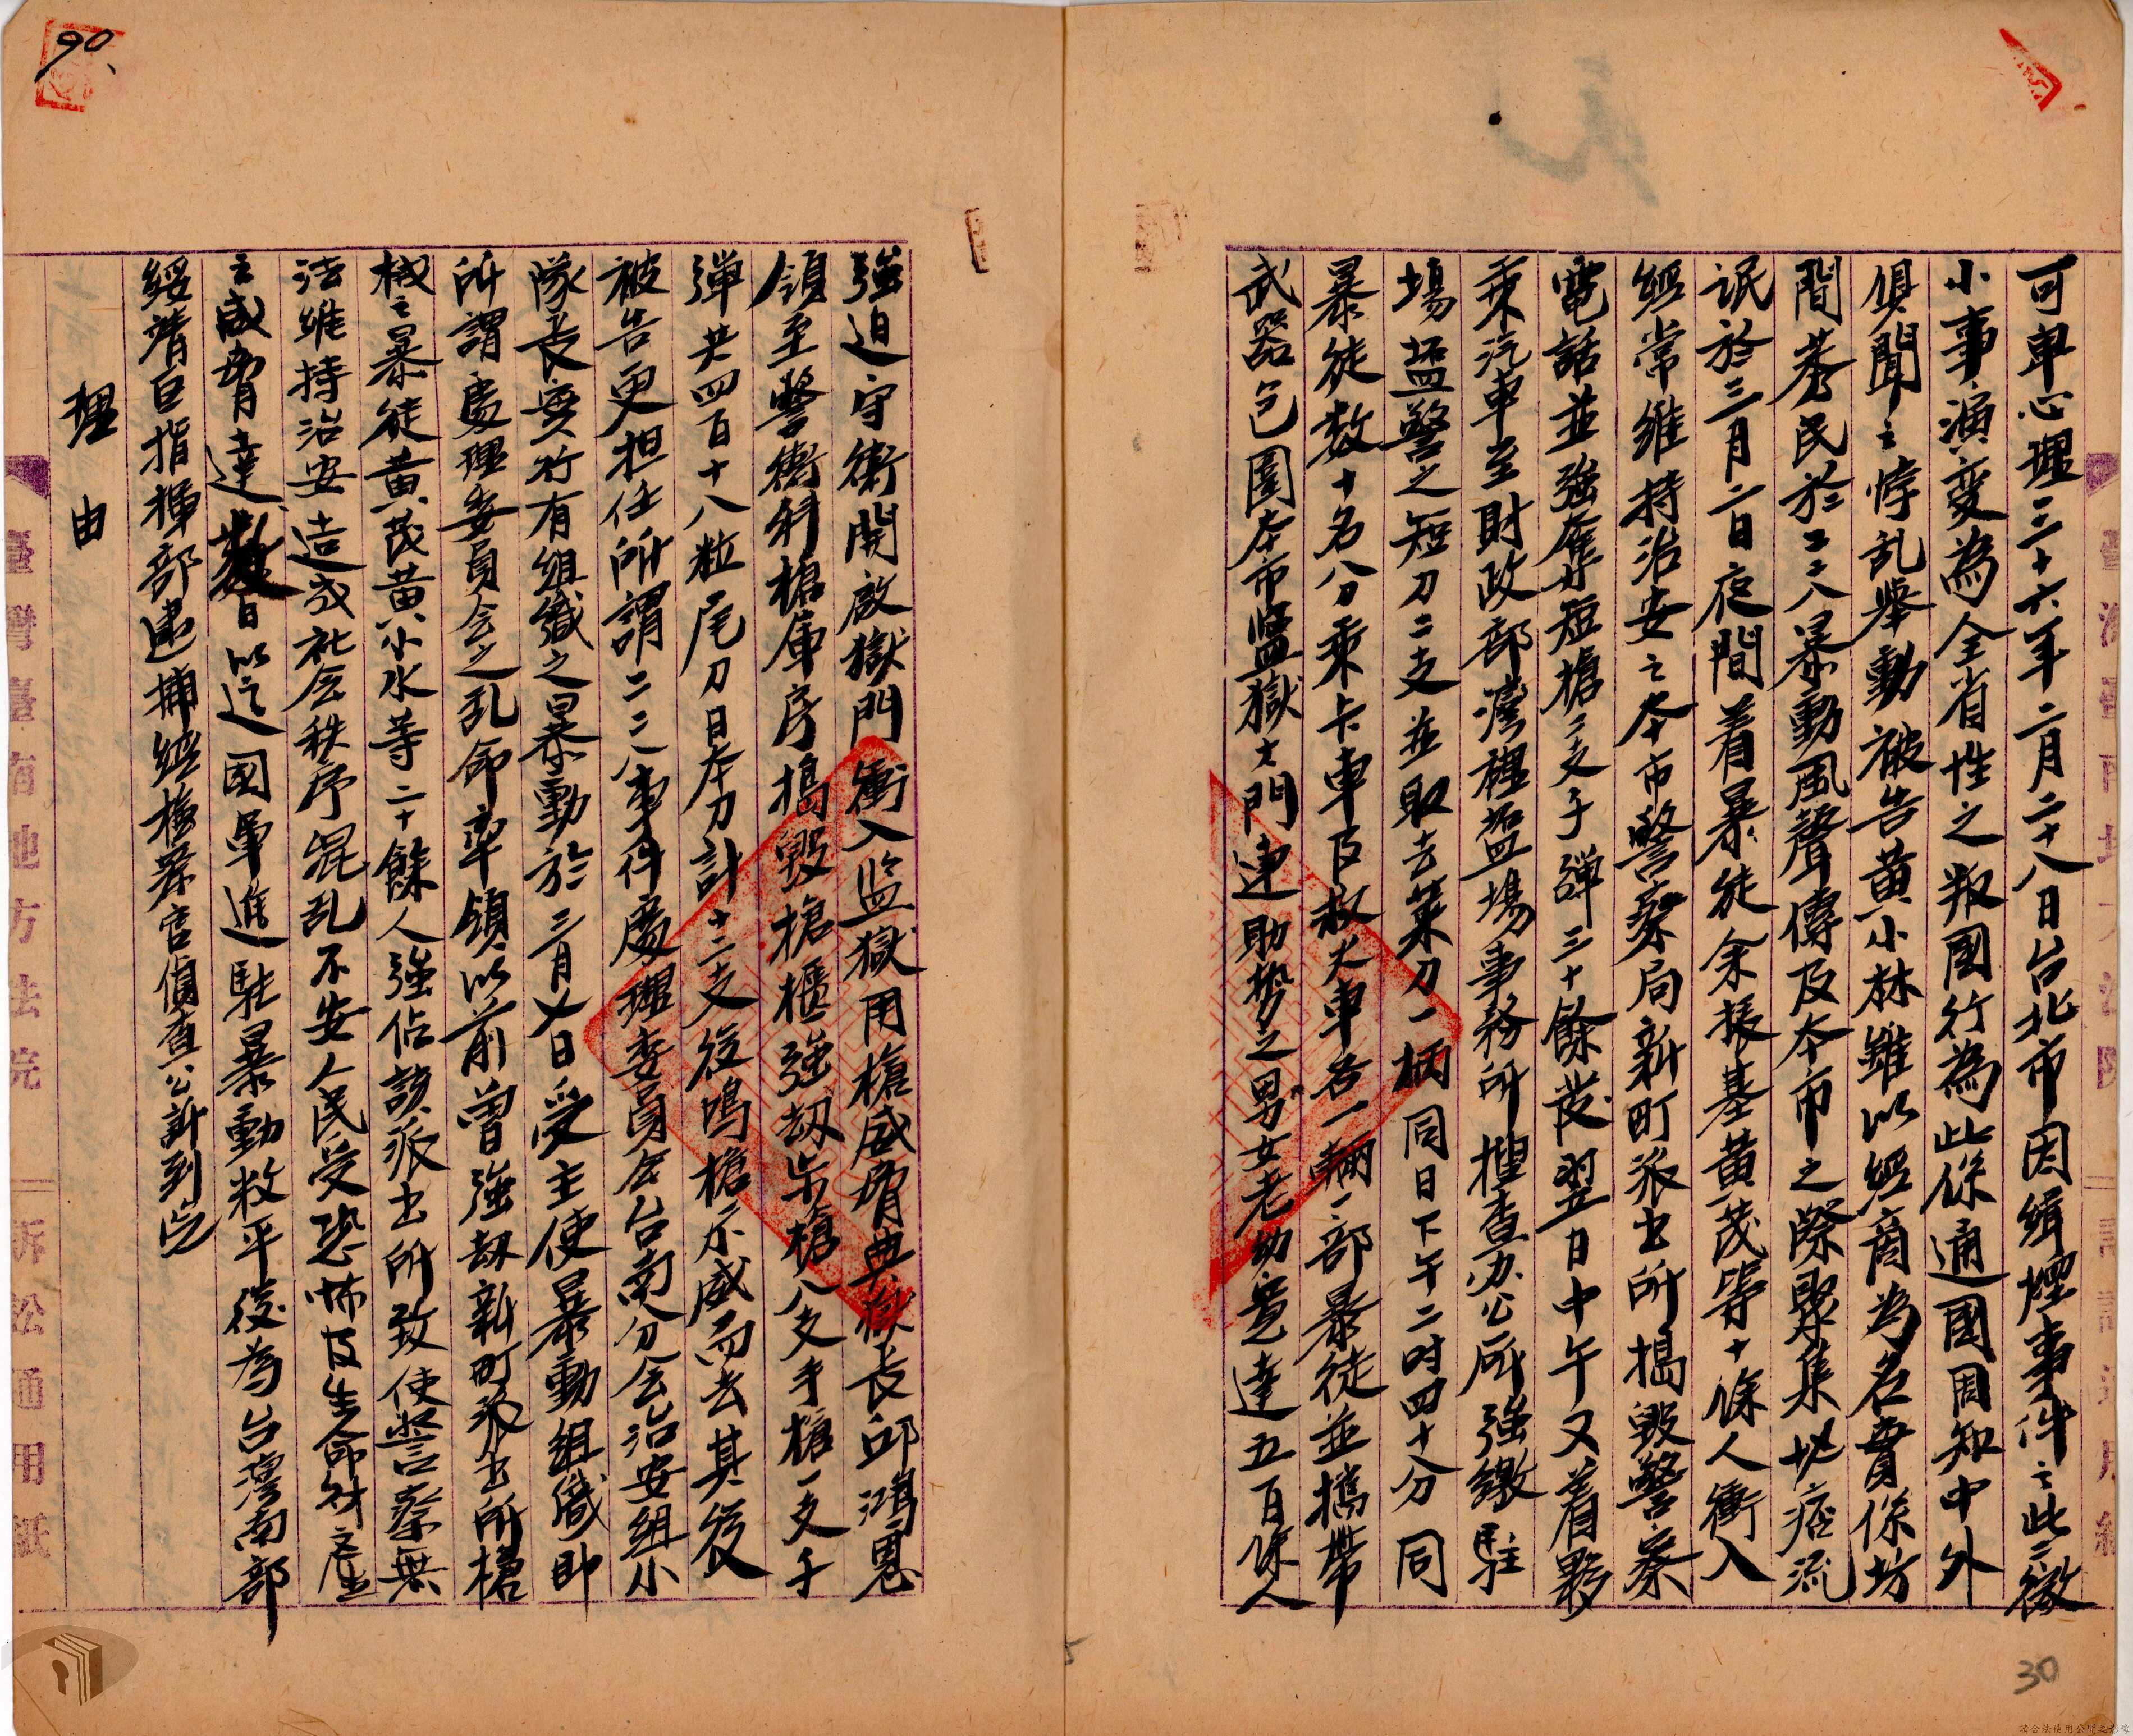 可卑心理三十六年二月二十八日台北市因緝煙事件之此二微
小事演变為全省性之叛國行為此係通國周知中外
俱聞之悖乱舉動被告黄小林雖以經商為名實係坊
間莠民於二二八暴動風聲傳及本市之際聚集地痞流
氓於三月二日夜間着暴徒余振基黄茂等十餘人衝入
經常維持治安之本市警察局新町派出所搗毀警察
電話並強奪短槍二支子彈三十餘發翌日中午又着夥
乘汽車至財政部灣裡鹽場事務所搜查办公厅強繳駐
場塩警之短刀二支並取去菜刀一柄同日下午二时四十分同
暴徒数十名分乘卡車及救火車各一輛一部暴徒並携帶
武器包圍本市監獄大門連助勢之男女老幼竟達五百餘人
強迫守衛開啟獄門衝入监獄用槍威脅典獄長邱鴻恩
領至警衛科槍庫房搗毀槍櫃強劫步槍八支手槍一支子
彈共四百十八粒尾刀日本刀計十二支後鳴槍示威而去其後
被告更担任所謂二二八事件處理委員会台南分会治安組小
隊長實行有組織之暴動於三月乂日受主使暴動組織即
所謂處理委員会之乱命率領以前曾強劫新町派出所槍
械之暴徒黄茂黄小水等二十餘人強佔該派出所致使警察無
法維持治安造成社会秩序混乱不安人民受恐怖及生命財產
之威脅達數日以迄國軍進駐暴動敉平後為台灣南部
綏靖區指揮部逮捕經檢察官偵查公訴到院
理由
90
30
臺灣臺南地方法院
訴訟通用紙
請合法使用公開之影像